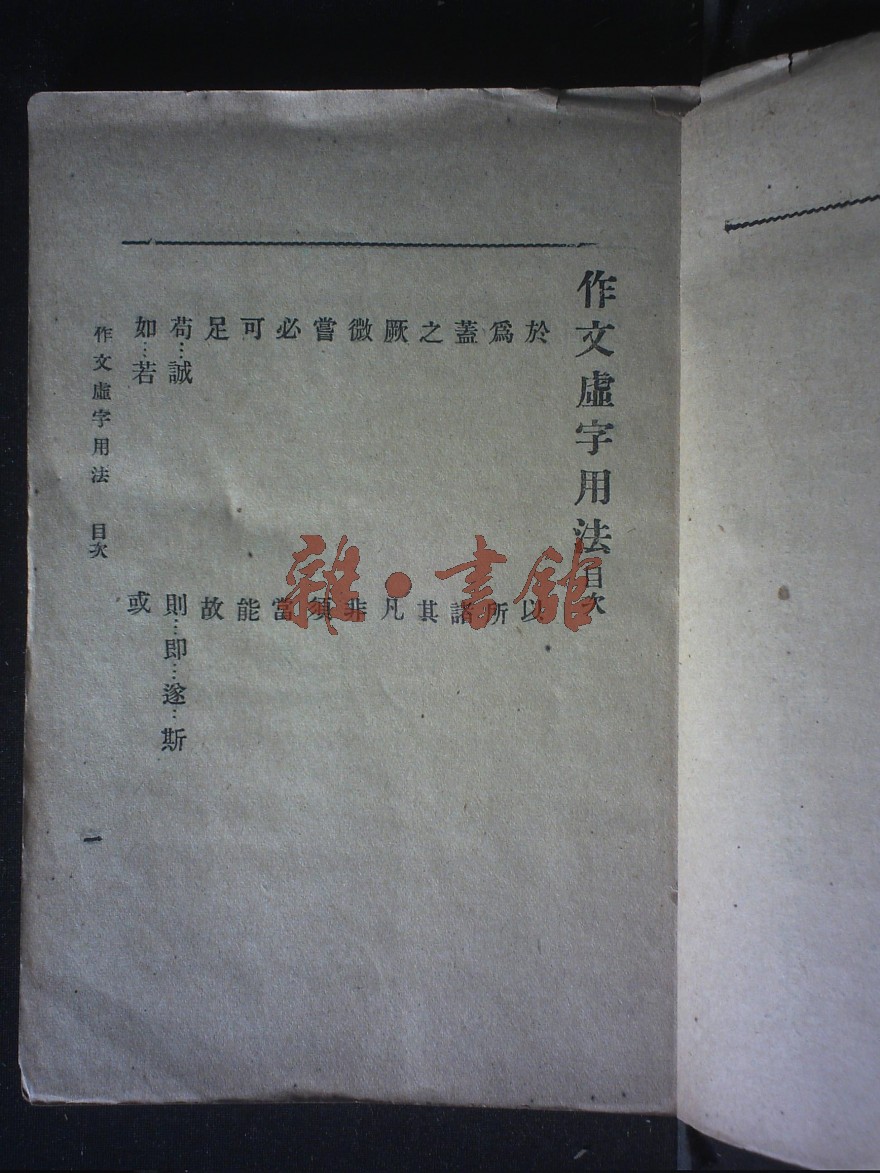 作文虛字用法目次
於 以
爲 所
蓋 諸
之 其
厥 凡
微 非
嘗 須
必 當
可 能
足 故
苟…誠 則…即…遂…斯
如…若 或
作文虛字用法 目次 一
雜·書館